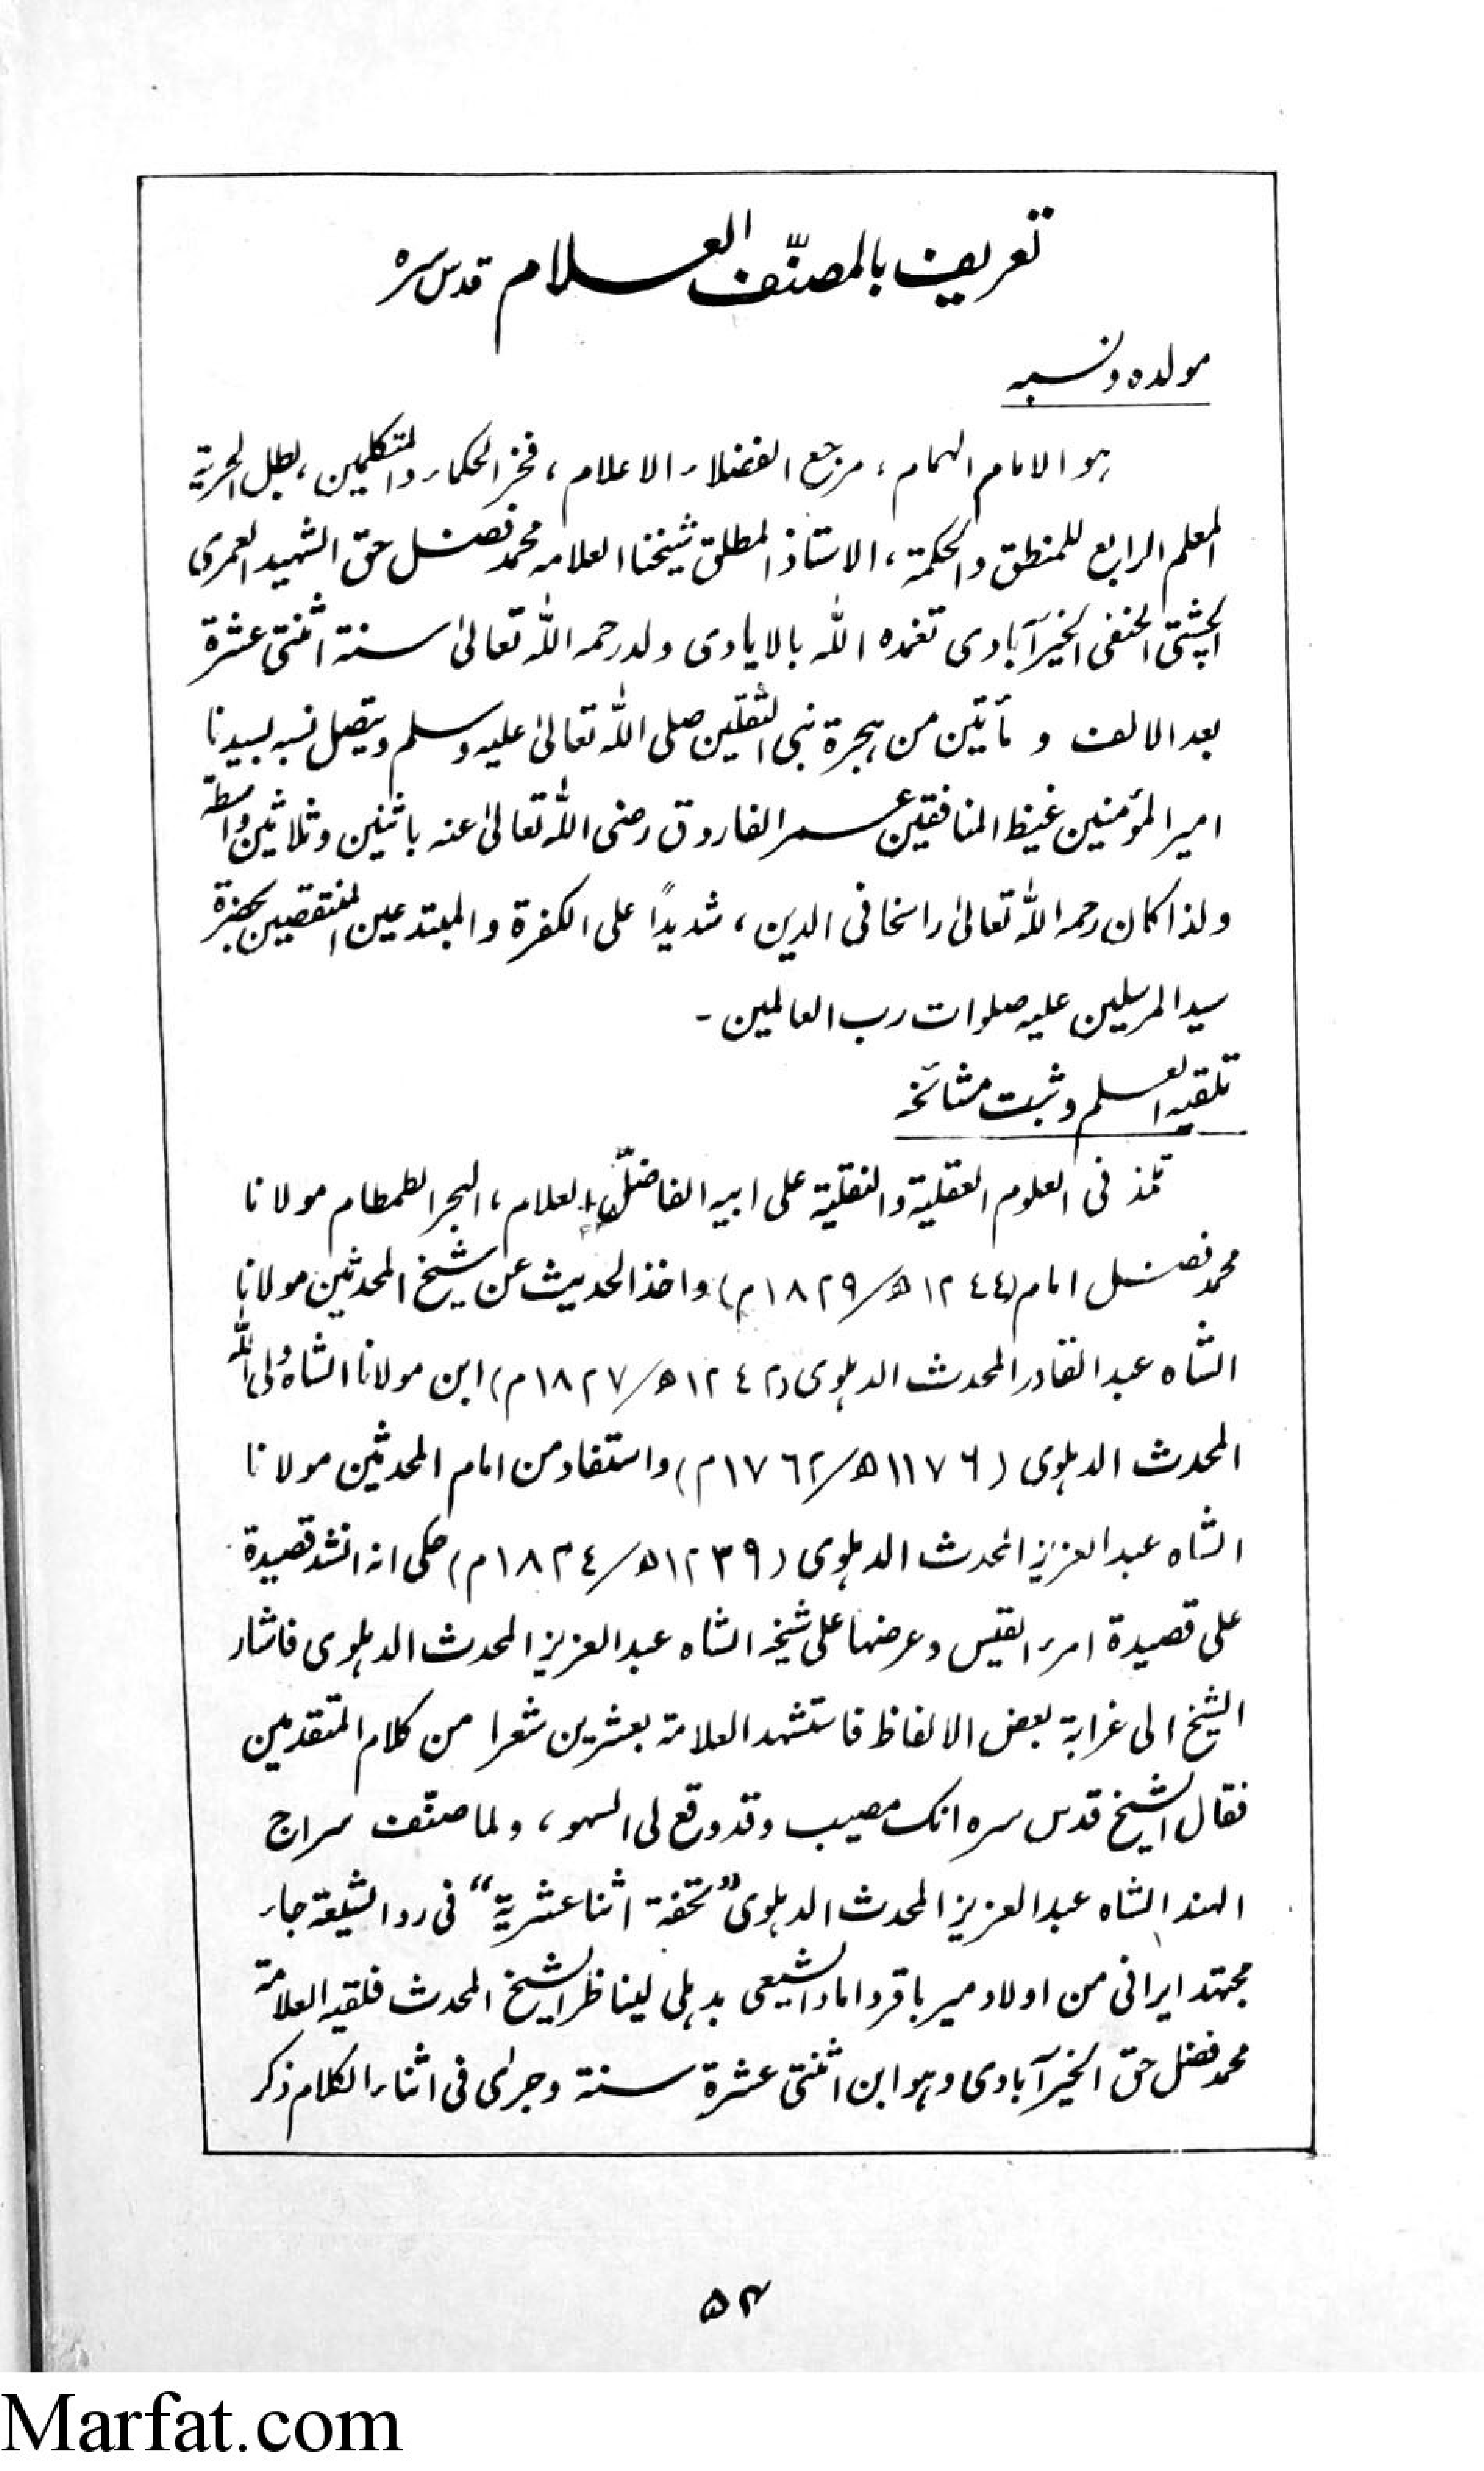 تعریف بالمصنّف العلام قدس سرہ
مولده ونسبه
ہو الامام الہمام، مرجع الفضلاء الاعلام، فخر الحکماء والمتکلمین، بطل الحریة
المعلم الرابع للمنطق والحکمة، الاستاذ المطلق شیخنا العلامه محمد فضل حق الشہید العمری
الچشتی الحنفی الخیرآبادی تغمده اللہ بالایادی ولد رحمه اللہ تعالیٰ سنة اثنتی عشرة
بعد الالف و مأتین من ہجرة نبی الثقلین صلی اللہ تعالیٰ علیه وسلم ویتصل نسبه بسیدنا
امیر المؤمنین غیظ المنافقین عمر الفاروق رضی اللہ تعالیٰ عنه باثنین وثلاثین واسطة
ولذا کان رحمه اللہ تعالیٰ راسخا فی الدین، شدیداً علی الکفرة والمبتدعین المنتقصین بحضرة
سید المرسلین علیه صلوات رب العالمین۔
تلقیه العلم وثبت مشائخه
تلمذ فی العلوم العقلیة والنقلیة علی ابیه الفاضل العلام، البحر الطمطام مولانا
محمد فضل امام (١٢٤٤ھ/١٨٢٩م) واخذ الحدیث عن شیخ المحدثین مولانا
الشاه عبد القادر المحدث الدہلوی (١٢٤٢ھ/١٨٢٧م) ابن مولانا الشاه ولی اللہ
المحدث الدہلوی (١١٧٦ھ/١٧٦٢م) واستفاد من امام المحدثین مولانا
الشاه عبد العزیز المحدث الدہلوی (١٢٣٩ھ/١٨٢٤م) حکی انه انشد قصیدة
علی قصیدة امرء القیس وعرضها علی شیخه الشاه عبد العزیز المحدث الدہلوی فاشار
الشیخ الی غرابة بعض الالفاظ فاستشہد العلامة بعشرین شعرا من کلام المتقدمین
فقال الشیخ قدس سره انک مصیب وقد وقع لی السہو، ولما صنّف سراج
الہند الشاه عبد العزیز المحدث الدہلوی "تحفة اثنا عشریة" فی رد الشیعة جاء
مجتہد ایرانی من اولاد میر باقر داماد الشیعی بدہلی لیناظر الشیخ المحدث فلقیه العلامة
محمد فضل حق الخیرآبادی وہو ابن اثنتی عشرة سنة وجرٰی فی اثناء الکلام ذکر
۵۲
Marfat.com